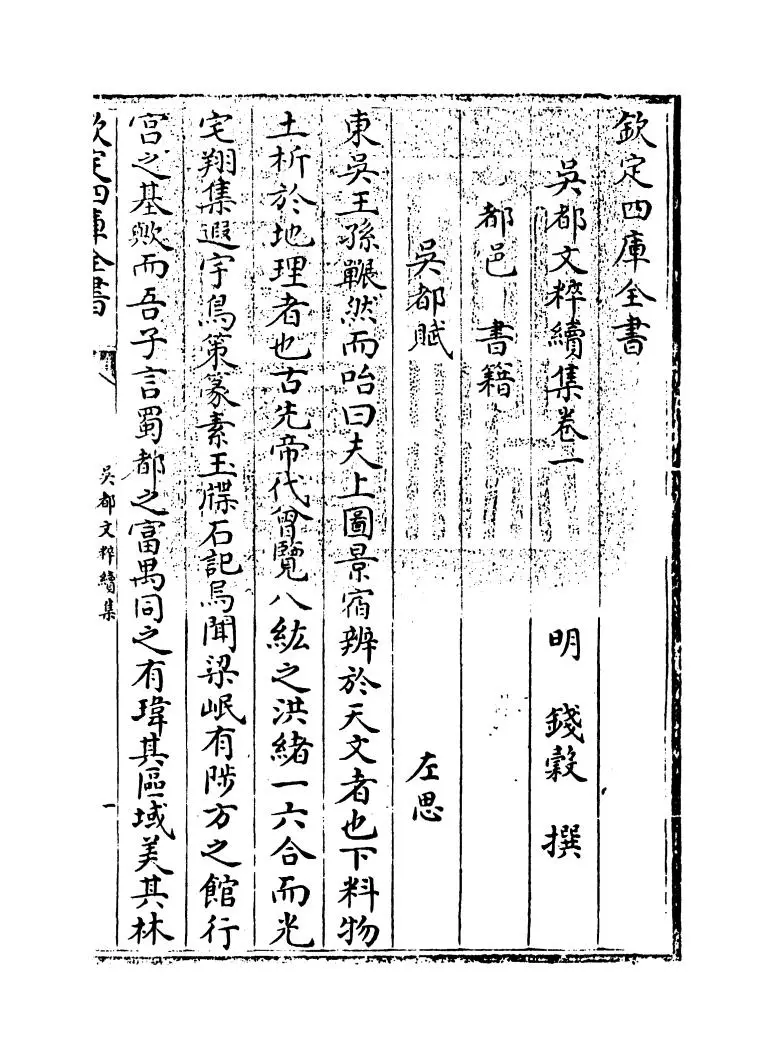 欽定四庫全書
吳都文粹續集卷一
明 錢穀 撰
都邑 書籍
吳都賦
左思
東吳王孫囅然而咍曰夫上圖景宿辨於天文者也下料物
土析於地理者也古先帝代曾覽八紘之洪緒一六合而光
宅翔集遐宇鳥策篆素玉牒石記烏聞梁岷有陟方之館行
宮之基歟而吾子言蜀都之富禺同之有瑋其區域美其林
欽定四庫全書
吳都文粹續集
一